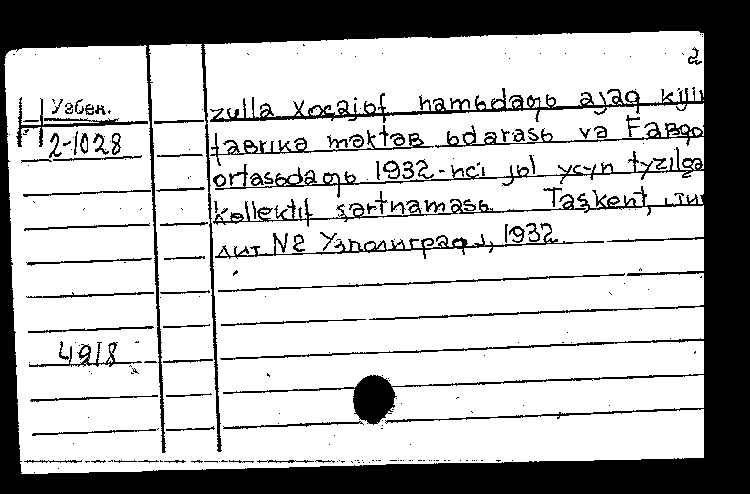 2
Узбек.
H
2-1028
zulla Xoçajof hamьdaƣь ajaq kiji
fabrikə məktəʙ ьdarasь və Faʙqo
ortasьdaƣь 1932-nci jьl ycyn tyzilgə
kollektif şərtnaması. Taşkent, тип
лит №2 Узполиграф, 1932.
4918